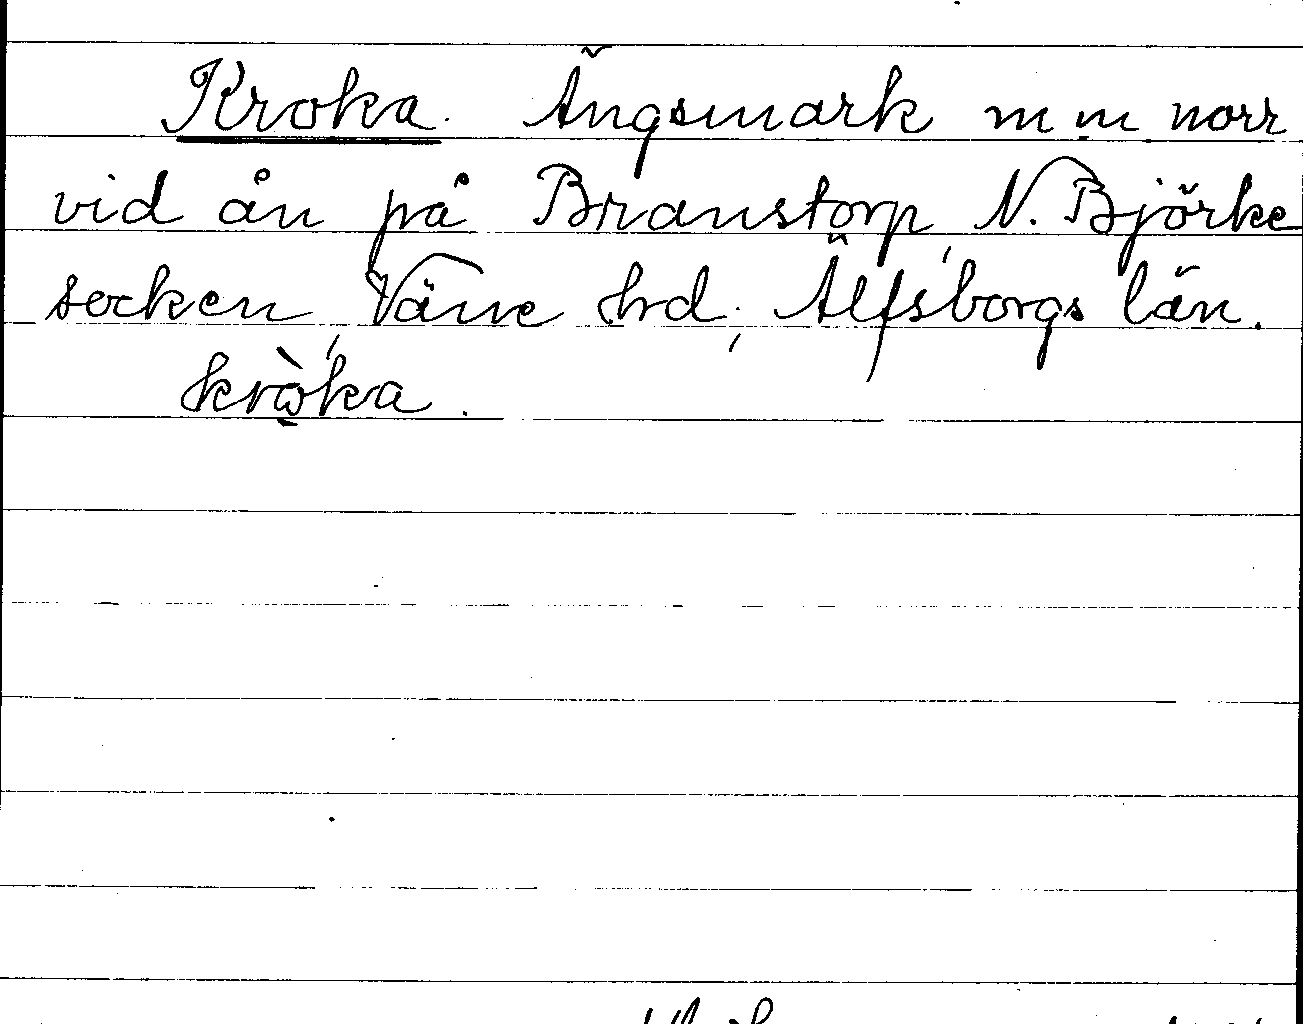 Kroka. Ängsmark m m norr
vid ån på Branstorp, N. Björke
socken, Väne hd, Älfsborgs län.
krò̤ka.